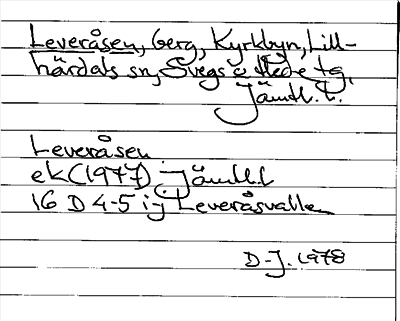 Leveråsen, berg, Kyrkbyn, Lill-
härdals sn, Svegs o Hede tg,
Jämtl. l.
Leveråsen
ek (1977) Jämtl. l
16 D 4-5 i-j Leveråsvallen
D-J. 1978